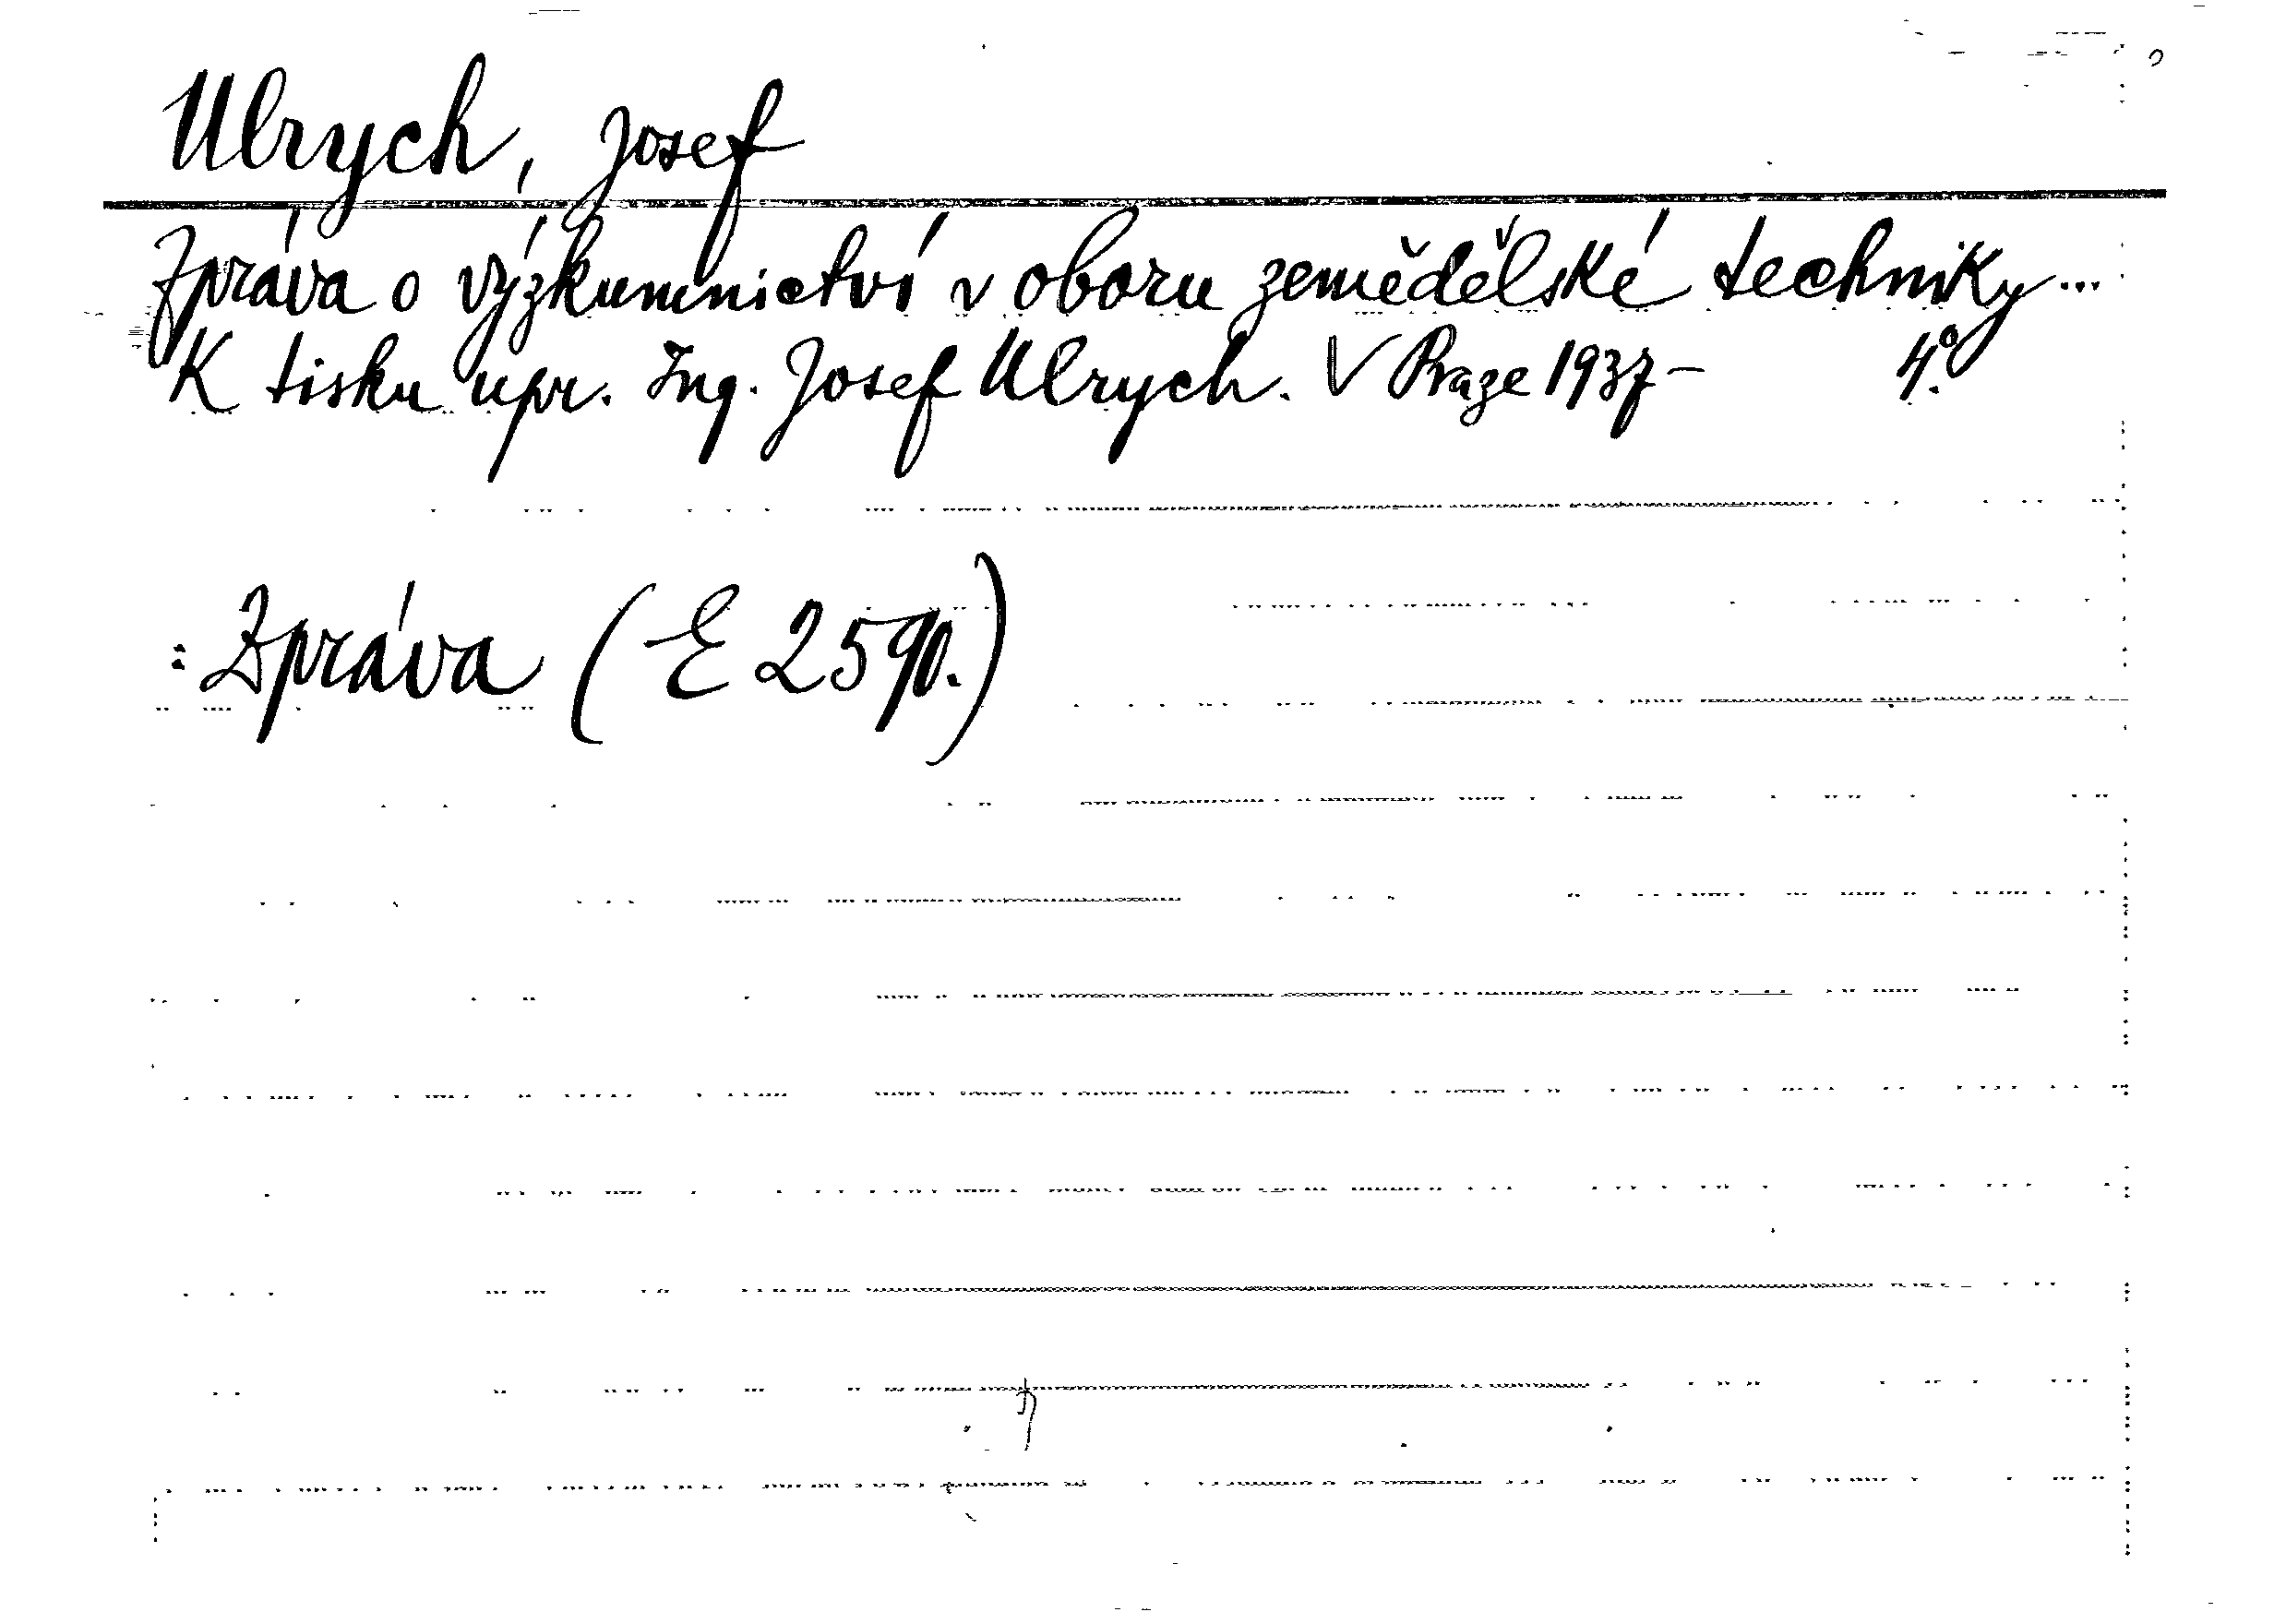 Ulrych, Josef
Zpráva o výzkumnictví v oboru zemědělské techniky...
K tisku upr. Ing. Josef Ulrych. V Praze 1937- 4°.
: Zpráva (E 2590.)